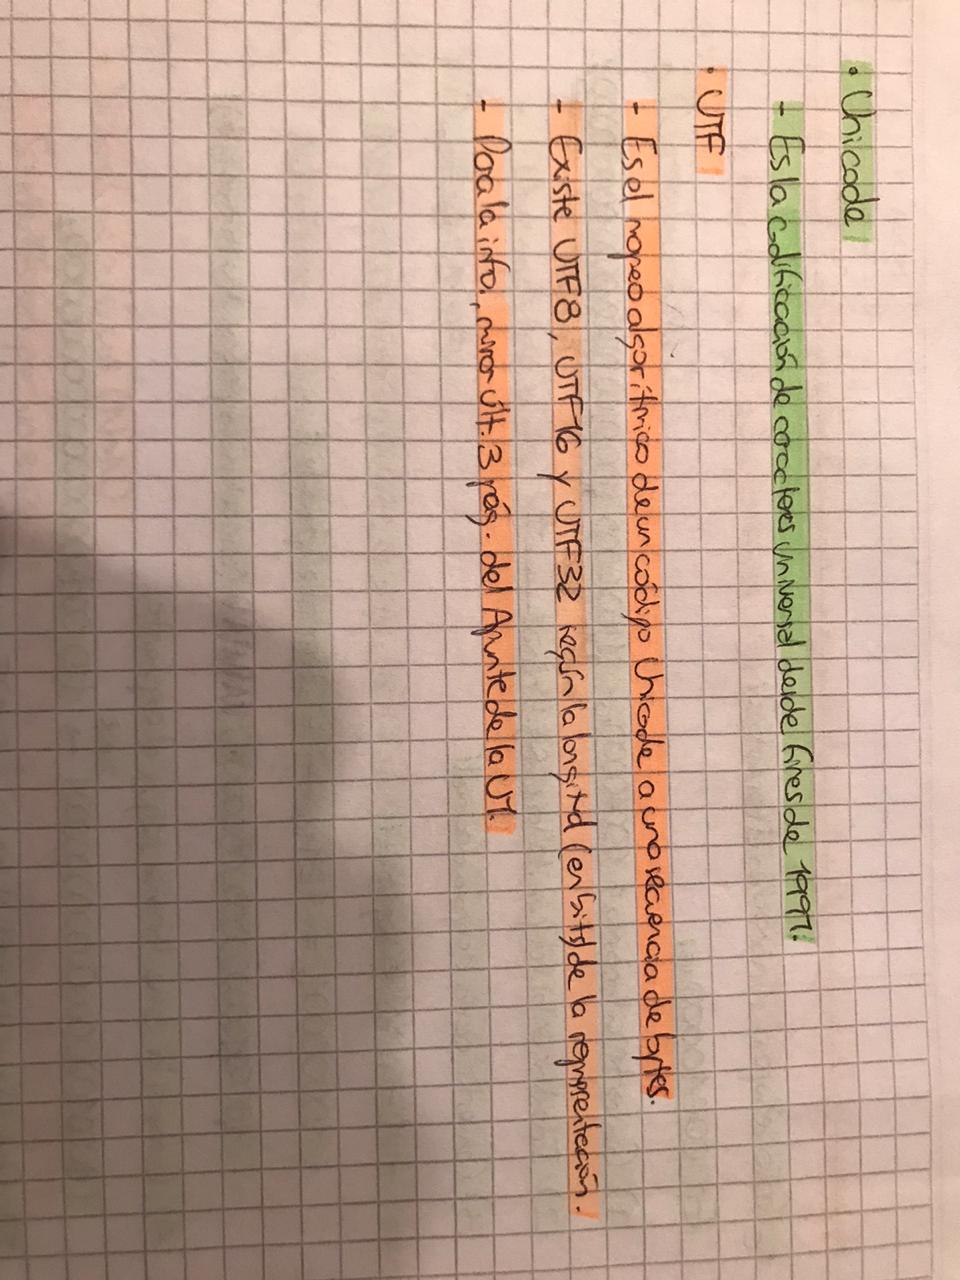 • Unicode
- Es la codificación de caracteres universal desde fines de 1991.
• UTF
- Es el mapeo algorítmico de un código Unicode a una secuencia de bytes.
- Existe UTF8, UTF16 y UTF32 según la longitud (en bits) de la representación.
- Para la info., mirar últ. 3 pág. del Apunte de la U1.